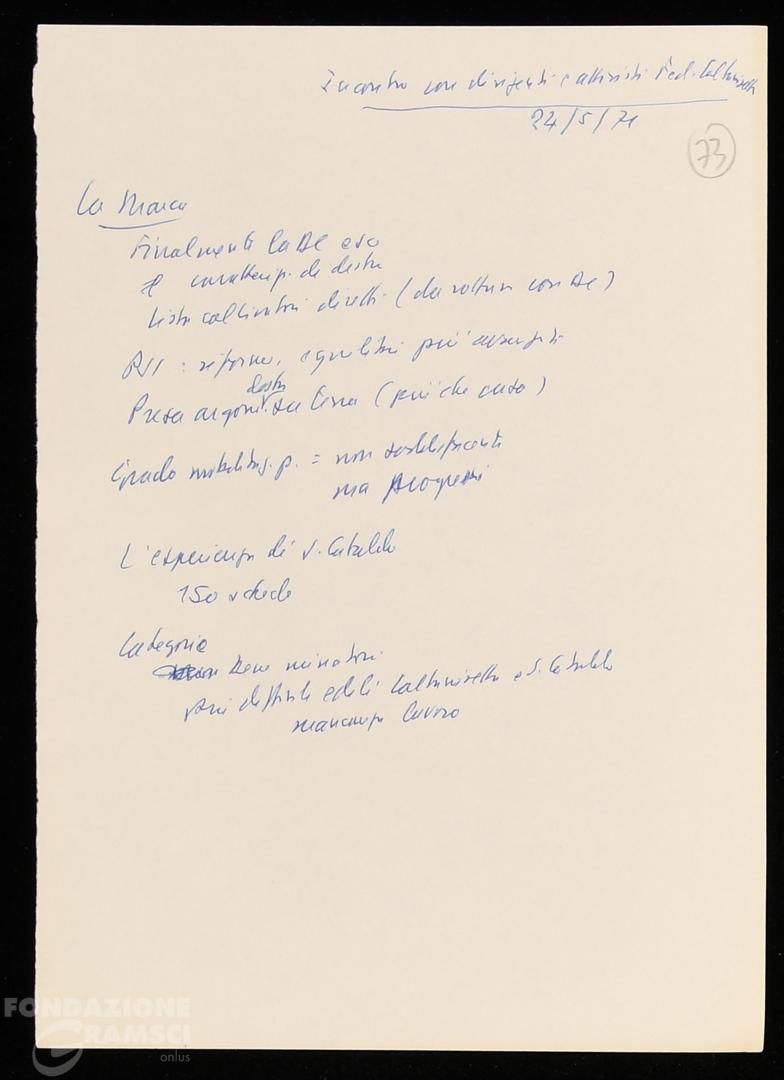 Incontro con dirigenti e attivisti Fed. Caltanissetta
24/5/71
73
La Marca
Finalmente la DC esce
caratterizz. di destra
Lista coltivatori diretti (da rottura con DC)
PSI : riforme, equilibri più avanzati
destra
Presa argom. su terra (più che casa)
Grado mobilitaz. p. = non soddisfacente
ma progressi
L'esperienza di S. Cataldo
150 schede
Categorie
bene minatori
più difficile edili Caltanissetta e S. Cataldo
mancanza lavoro
FONDAZIONE
GRAMSCI
onlus